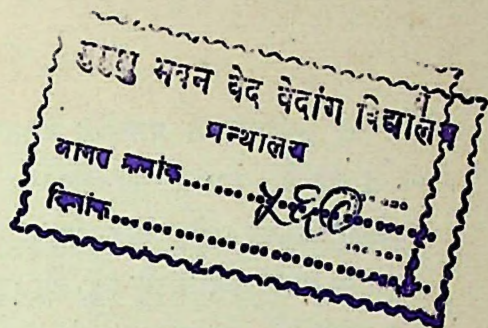 मुमुक्षु भवन वेद वेदांग विद्यालय
ग्रन्थालय
आगत क्रमांक...... ५६८......
दिनांक......